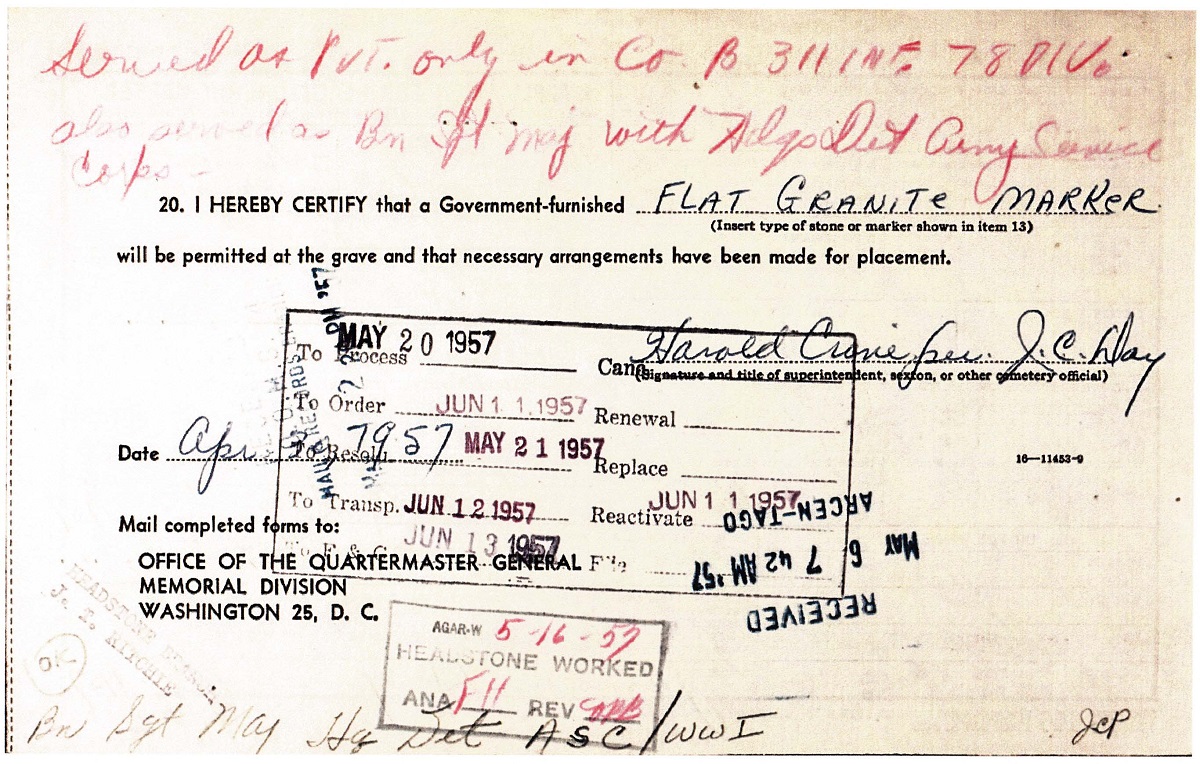 Served as Pvt. only in Co. B 311 INF. 78 DIV.
also served as Bn Sgt Maj with Hdqs Det Army Service
Corps -
20. I HEREBY CERTIFY that a Government-furnished FLAT GRANITE MARKER
(Insert type of stone or marker shown in item 13)
will be permitted at the grave and that necessary arrangements have been made for placement.
Harold Crone per. J.C. Day
(Signature and title of superintendent, sexton, or other cemetery official)
To Process MAY 20 1957
To Order JUN 11 1957 Renewal
Date 1957
MAY 21 1957 Replace
To Transp. JUN 12 1957 Reactivate JUN 11 1957
JUN 13 1957
16—11453-9
Mail completed forms to:
OFFICE OF THE QUARTERMASTER GENERAL
MEMORIAL DIVISION
WASHINGTON 25, D. C.
RECEIVED
MAY 6 7 42 AM '57
ARCEN-TAGO
AGAR-W 5-16-57
HEADSTONE WORKED
ANA FH REV
OK
Bn Sgt Maj Hq Det ASC/WWI
JCP